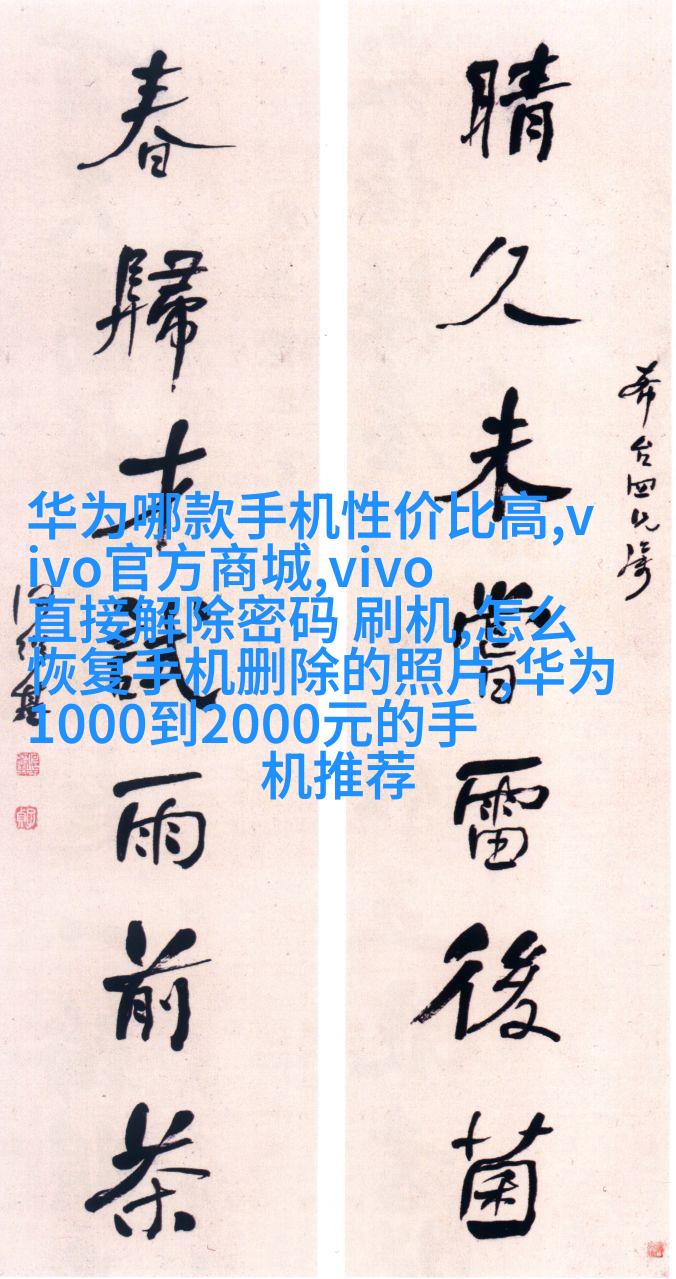 晴久未嘗雷後菌
春歸才試雨前茶
华为哪款手机性价比高,v
ivo官方商城,vivo
直接解除密码 刷机,怎么
恢复手机删除的照片,华为
1000到2000元的手
机推荐